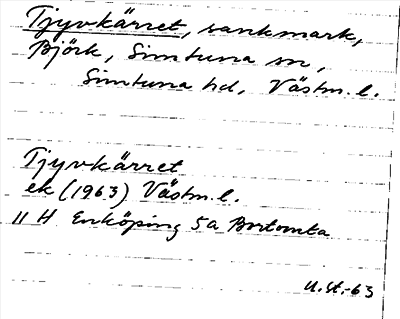 Tjyvkärret, sankmark,
Björk, Simtuna sn,
Simtuna hd, Västm. l.
Tjyvkärret
ek (1963) Västm. l.
11 H Enköping 5a Bortomta
U.St.-63